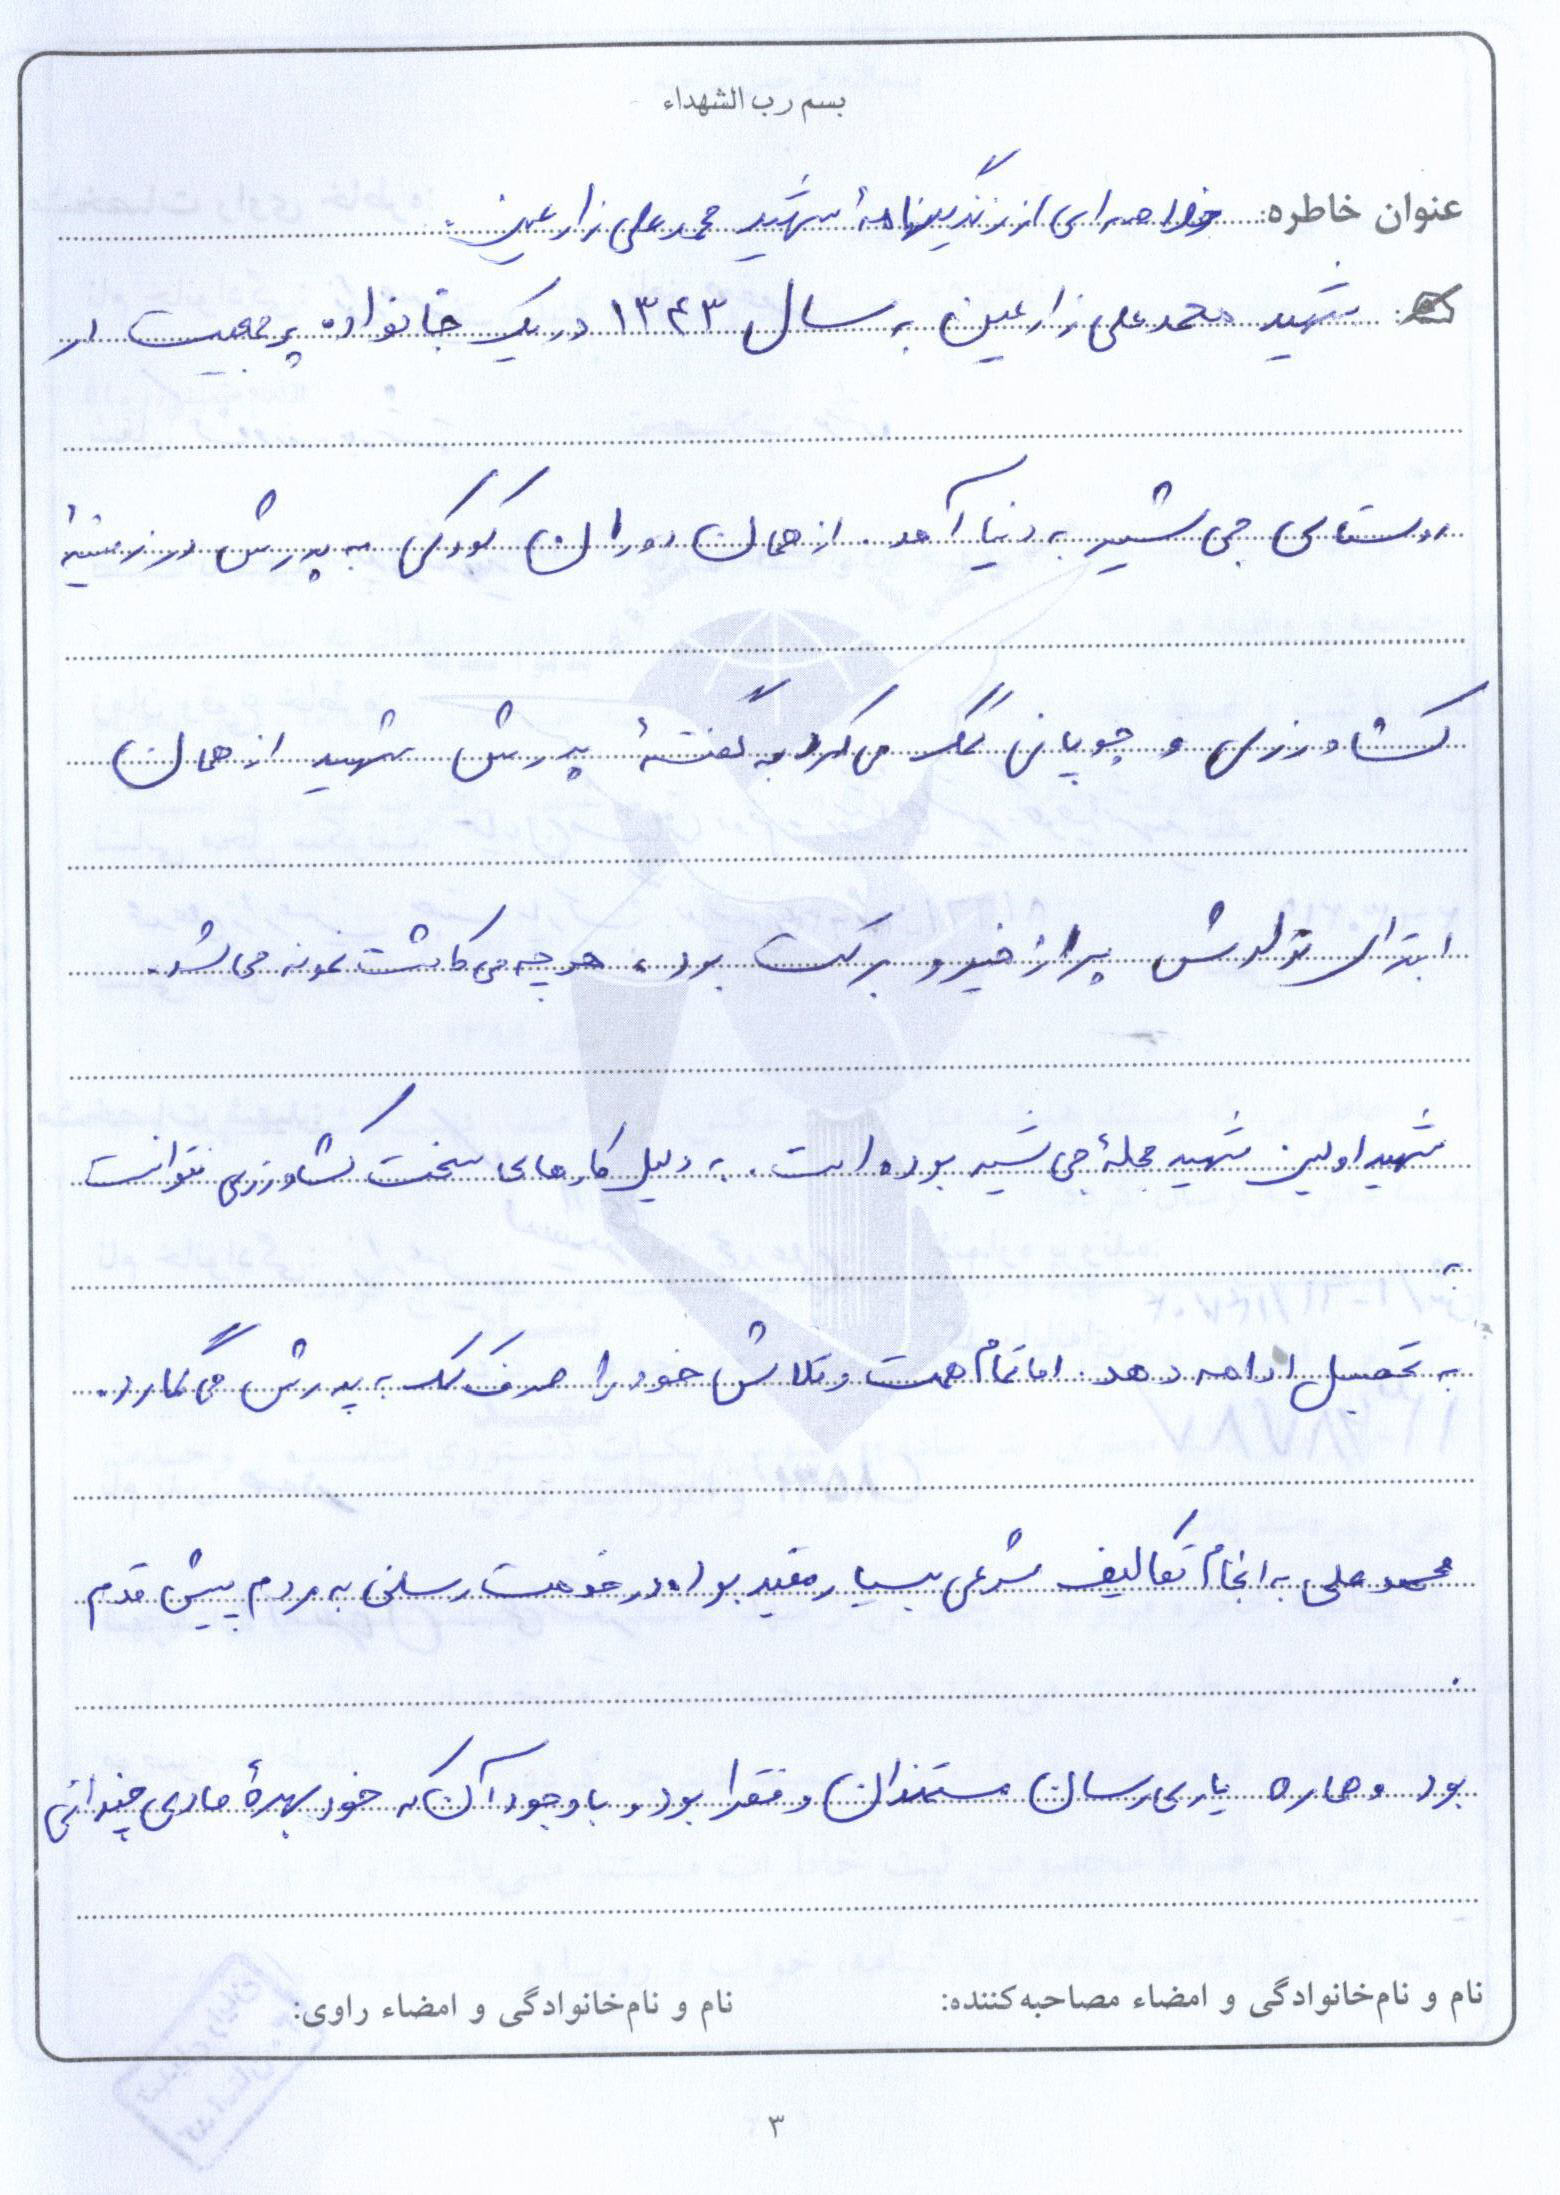 بسم رب الشهداء
عنوان خاطره: خلاصه‌ای از زندگینامهٔ شهید محمد علی زارعین.
شهید محمد علی زارعین به سال ۱۳۴۳ در یک خانواده پرجمعیت در
روستای جی شیر به دنیا آمد. از همان دوران کودکی به پدرش در زمینهٔ
کشاورزی و چوپانی کمک می‌کرد به گفتهٔ پدرش شهید از همان
ابتدای تولدش پر از خیر و برکت بود، هر چه می‌کاشت نمونه می‌شد.
شهید اولین شهید محلهٔ جی شیر بوده است. به دلیل کارهای سخت کشاورزی نتوانست
به
به تحصیل ادامه دهد. اما تمام همت و تلاش خود را صرف کمک به پدرش می‌گمارد.
محمد علی به انجام تکالیف شرعی بسیار مقید بود در خدمت رسانی به مردم پیش قدم
بود و هماره یاری رسان مستمندان و فقرا بود و با وجود آن که خود بهرهٔ مادی چندانی
نام و نام‌خانوادگی و امضاء مصاحبه‌کننده: نام و نام‌خانوادگی و امضاء راوی:
۳